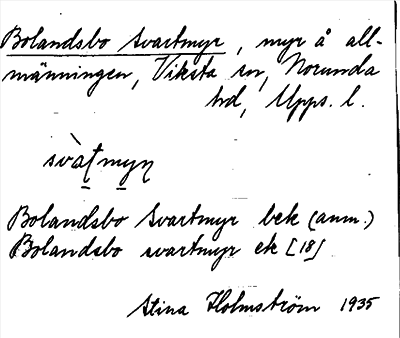 Bolandsbo Svartmyr, myr å all-
männingen, Viksta sn, Norunda
hd, Upps. l.
svàt̨myr
Bolandsbo Svartmyr bek (anm.)
Bolandsbo svartmyr ek [18]
Stina Holmström 1935